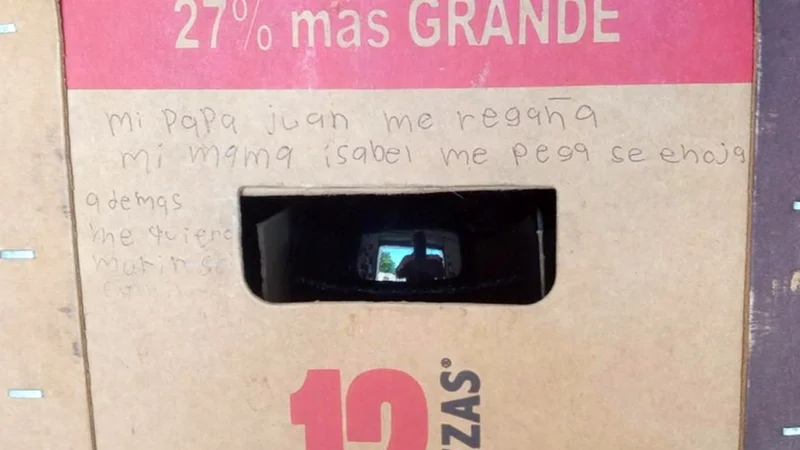 27% mas GRANDE
mi papa juan me regaña
mi mama isabel me pega se enoja
ademas
me quiero
12
ZZAS®